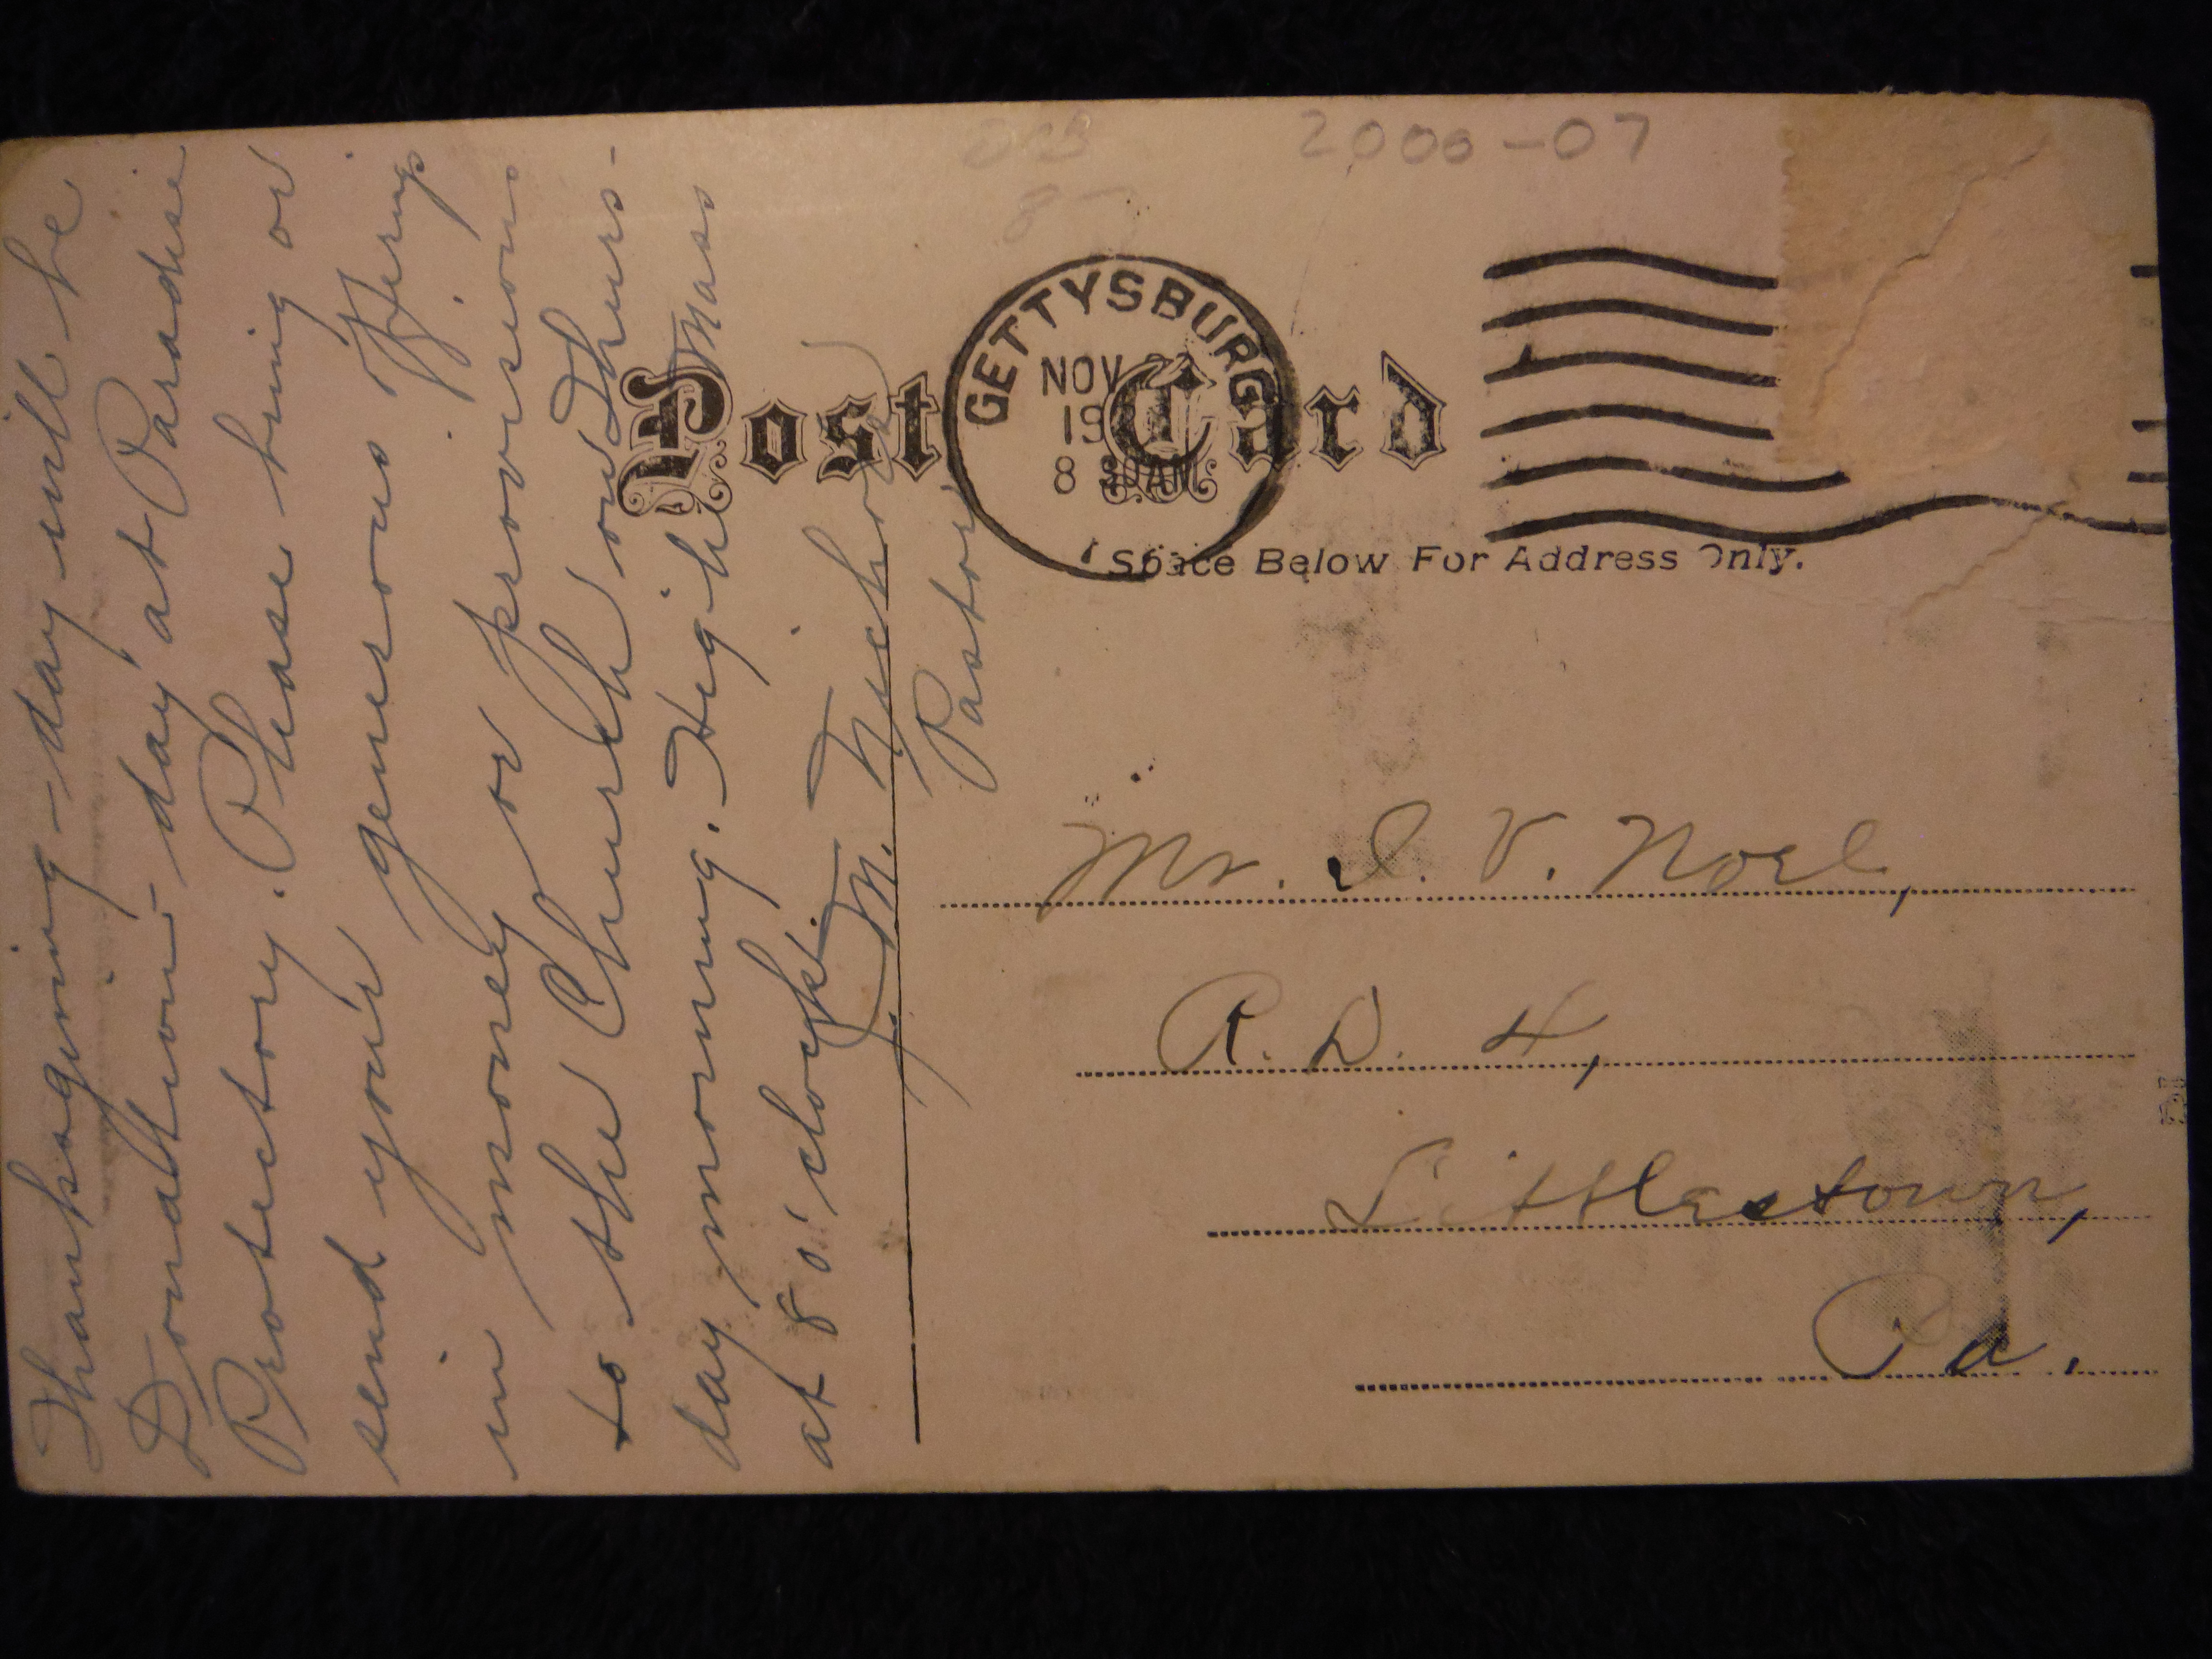 Thanksgiving-day will be
Donation-day at Paradise
Protectory. Please bring or
send your generous offerings
in money or provisions
to the Church on Thurs-
day morning. High Mass
at 8 o'clock.
J. M.
Pastor
2000-07
Post Card
GETTYSBURG
NOV
19
8 30AM
Space Below For Address Only.
Mr. I. V. Noel,
R. D. 4,
Littlestown,
Pa.